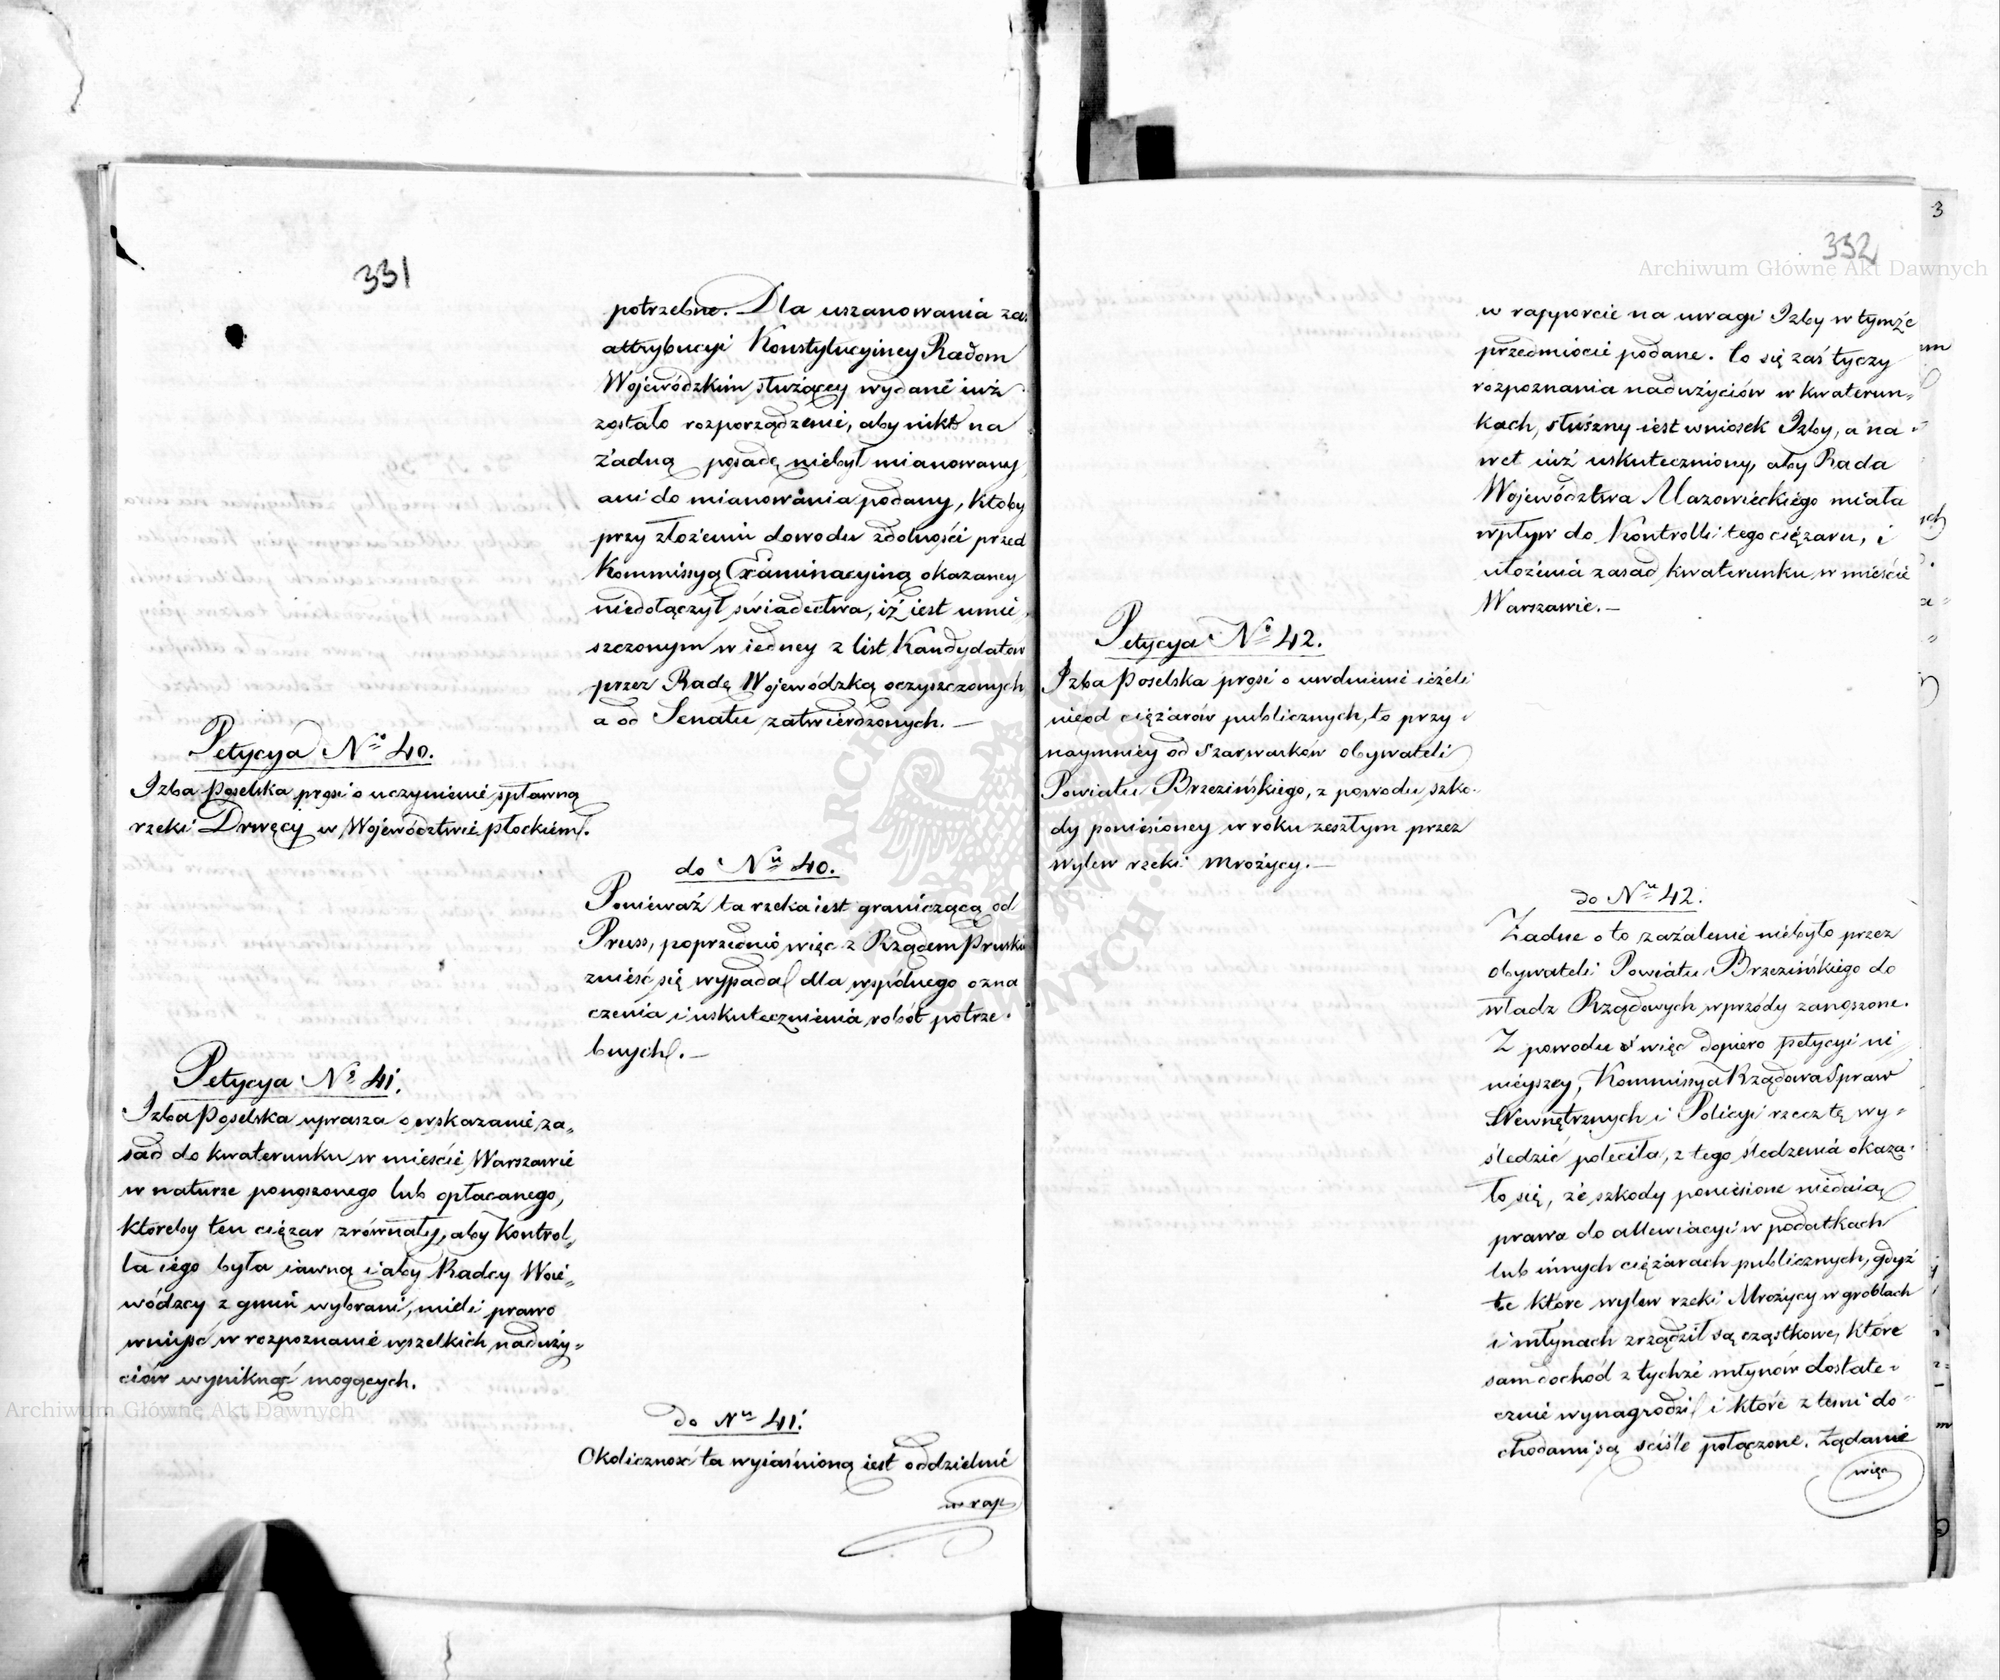 331
potrzebne. Dla uszanowania zaś
attrybucyi Konstytucyiney Radom
Wojewódzkim służącey wydane iuż
zostało rozporządzenie, aby nikt na
żadną posadę niebył mianowany
ani do mianowania podany, ktoby
przy złożeniu dowodu zdolności przed
Kommissyą Examinacyiną okazaney
niedołączył świadectwa, iż iest umie
szczonym w iedney z list Kandydatów
przez Radę Wojewódzką oczyszczonych
a od Senatu zatwierdzonych. —
Petycya No 40.
Izba Poselska prosi o uczynienie spławną
rzeki Drwęcy w Województwie płockiem.
do Nu 40.
Ponieważ ta rzeka iest graniczącą od
Pruss, poprzednio więc z Rządem Pruskim
znieść się wypada dla wspólnego ozna
czenia i uskutecznienia robót potrze.
bnych. —
Petycya No 41.
Izba Poselska uprasza o wskazanie za„
sad do kwaterunku w mieście Warszawie
w naturze ponoszonego lub opłacanego,
któreby ten ciężar zrównały, aby Kontrol„
la iego była iawną i aby Radcy Woie„
wódzcy z gmin wybrani, mieli prawo
wniyść w rozpoznanie wszelkich naduży„
ciów wyniknąć mogących.
do Nu 41.
Okoliczność ta wyiaśnioną iest oddzielnie
w rap
3
332
w rapporcie na uwagi Izby w tymże
przedmiocie podane. Co się zaś tyczy
rozpoznania nadużyciów w kwaterun„
kach, słuszny iest wniosek Izby, a na
wet iuż uskuteczniony, aby Rada
Województwa Mazowieckiego miała
wpływ do Kontrolli tego ciężaru, i
ułożenia zasad kwaterunku w mieście
Warszawie. —
Petycya No 42.
Izba Poselska prosi o uwolnienie ieżeli
nieod ciężarów publicznych, to przy
naymniey od szarwarków obywateli
Powiatu Brzezińskiego, z powodu szko.
dy poniesioney w roku zeszłym przez
wylew rzeki Mrożycy. —
do Nu 42.
Żadne o to zażalenie niebyło przez
obywateli Powiatu Brzezińskiego do
władz Rządowych wprzódy zanoszone.
Z powodu więc dopiero petycyi ni„
nieyszey, Kommissya Rządowa Spraw
Wewnętrznych i Policyi rzecz tę wy„
śledzić poleciła, z tego śledzenia okaza.
ło się, że szkody poniesione niedaią
prawa do allewiacyi w podatkach
lub innych ciężarach publicznych, gdyż
te które wylew rzeki Mrożycy w groblach
i młynach zrządził są cząstkowe, które
sam dochód z tychże młynów dostate„
cznie wynagrodzi i które z temi do„
chodami są ściśle połączone. Żądanie
więc
Archiwum Główne Akt Dawnych
Archiwum Główne Akt Dawnych